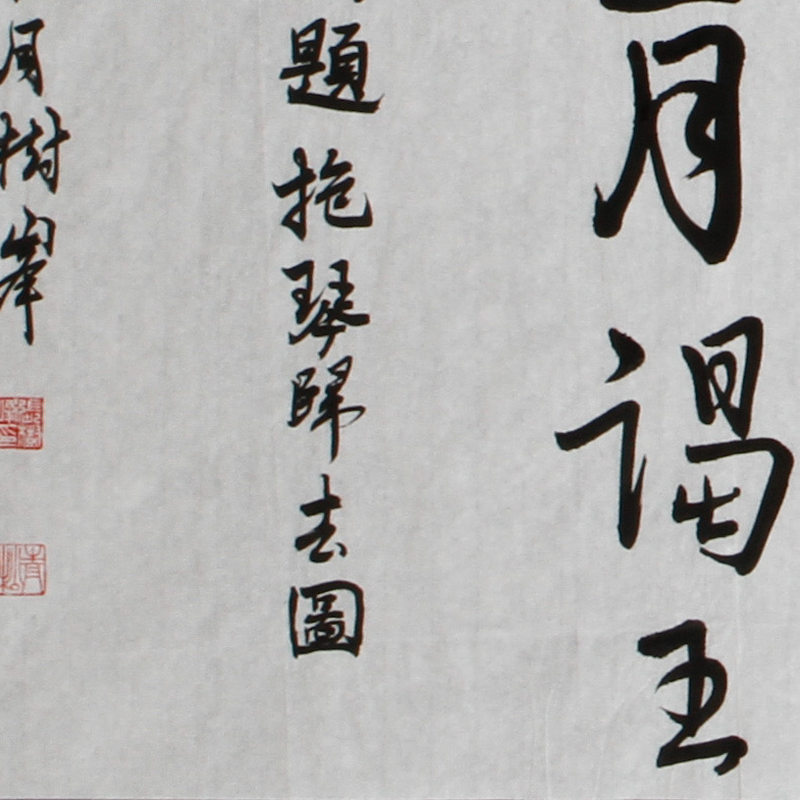 月謁王
題抱琴歸去圖
月樹峯